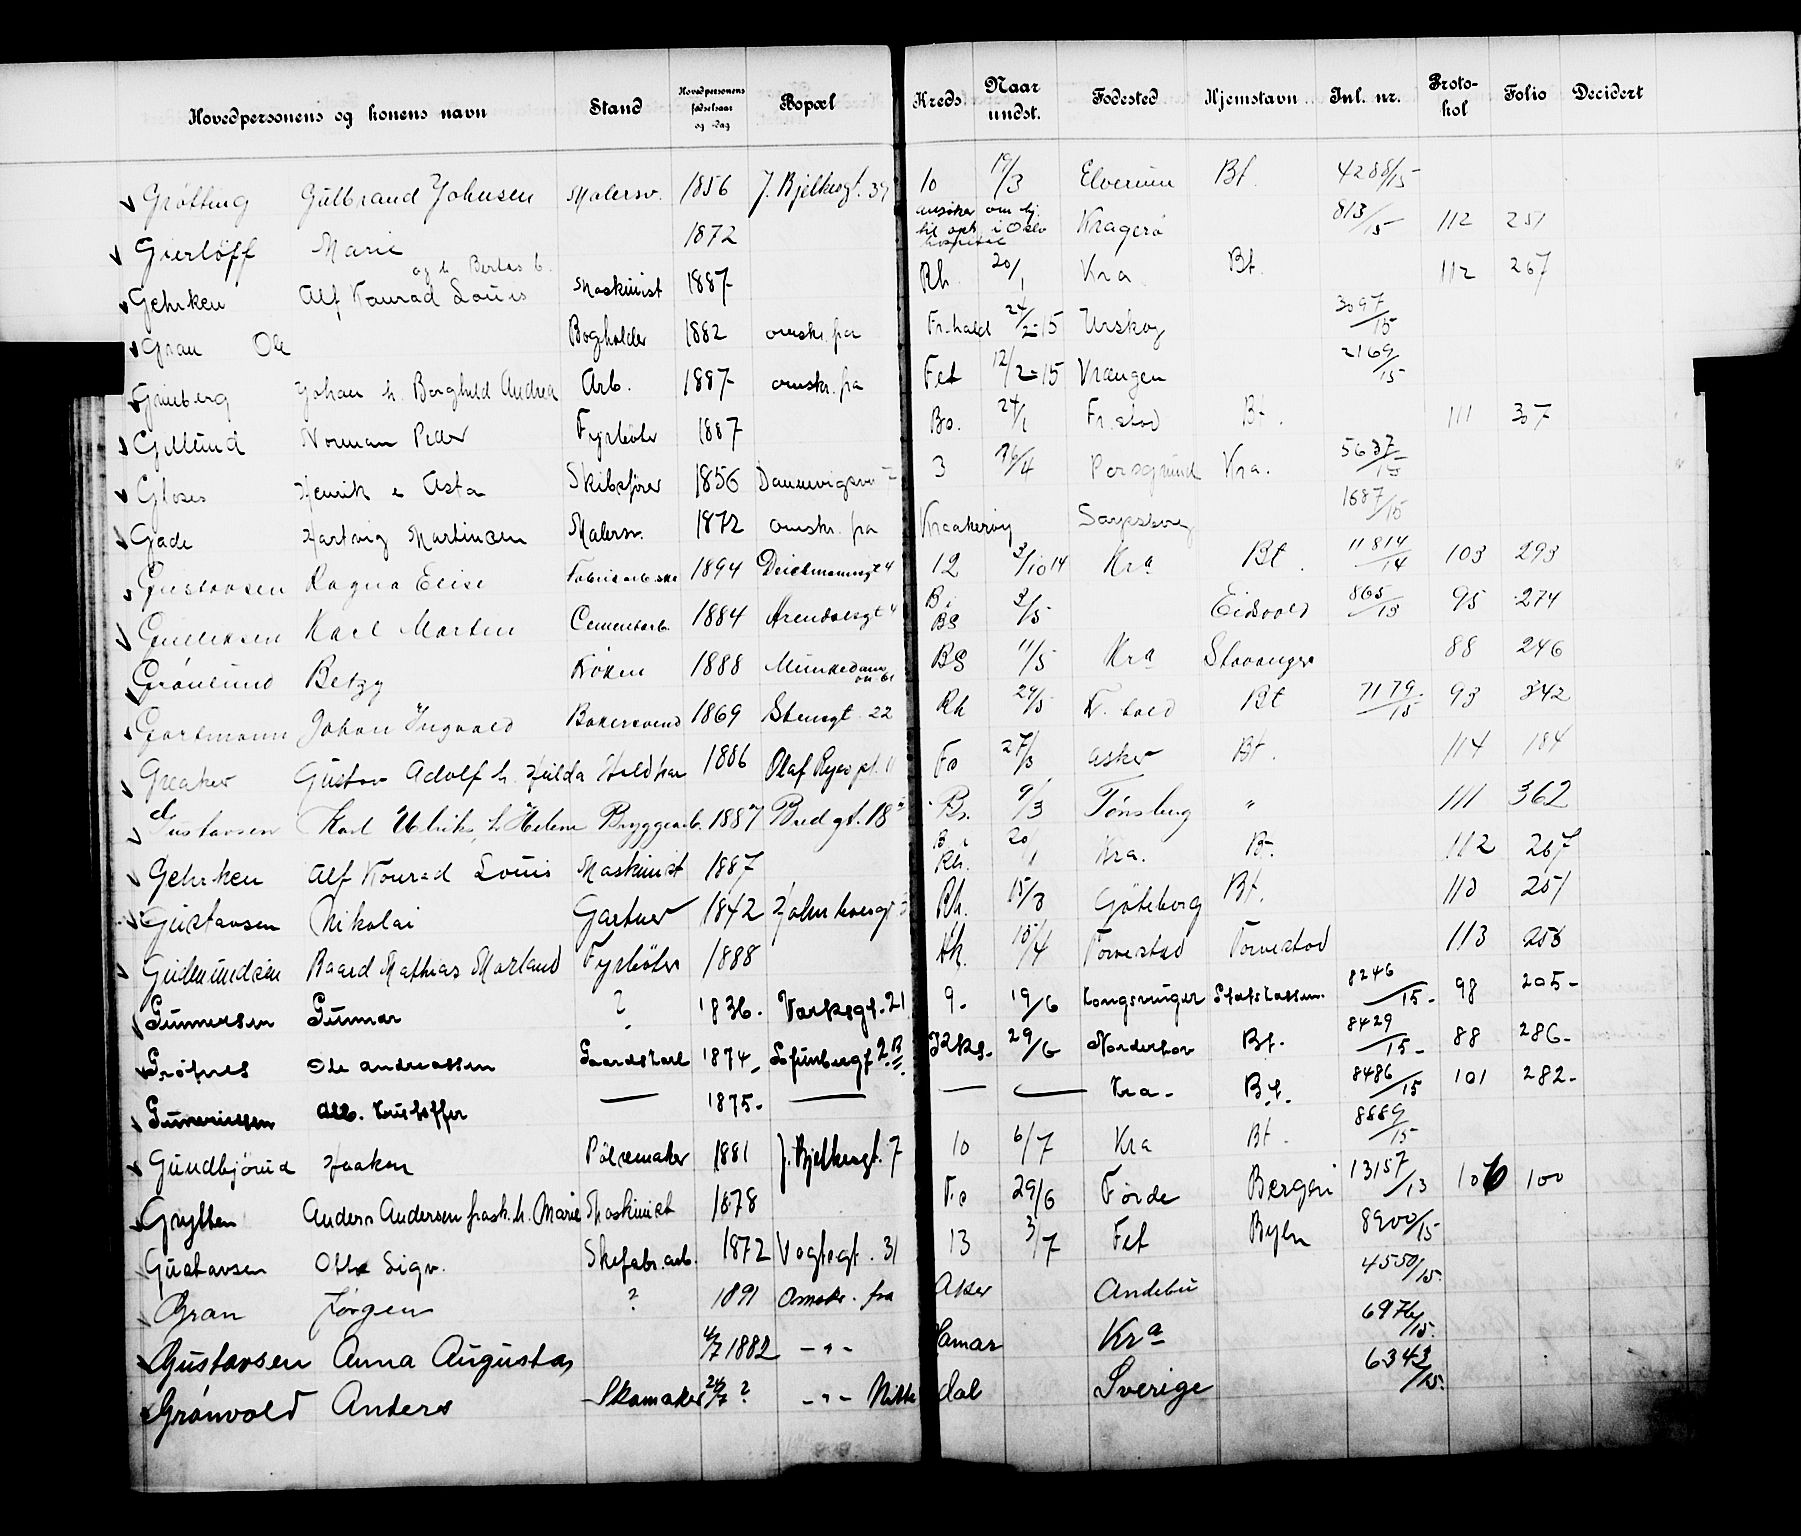 Hovedpersonens og konens navn Stand Hovedpersonens fødselsaar og -dag Bopæl Kreds Naar undst. Fødested Hjemstavn Inl. nr. Protokol Folio Decidert
Grøtting Gulbrand Johnsen Malersv. 1856 J. Bjelkesgt. 10 19/3 Elverum Bt. 4288/15
Gierløff Marie 1872 ansøker om bj. til opt. i Oslo hospital Kragerø 813/15 112 251
Gehrken Alf Konrad Louis og h. Bertas b. Maskinist 1887 Rh. 20/1 Kra Bt. 112 267
Gran Ole Bogholder 1882 omskr. fra Fr.hald 24/2-15 Urskog 3097/15
Grinberg Johan h. Borghild Andrea Arb. 1887 omskr. fra Fet 12/2-15 Vrangen 2169/15
Gillund Norman Peder Fyrbøter 1887 Bs. 24/1 Fr.stad Bt. 111 307
Gloser Henrik e Asta Skibsfører 1856 3 26/4 Porsgrund Kra. 5637/15
Gade Hartvig Martinsen Malersv. 1872 omskr. fra Kraakerøy Sarpsborg 1687/15
Gustavsen Ragna Elise 1894 Deichmannsgt 4 12 3/10 14 Kra Bt. 11814/14 103 293
Gulliksen Karl Martin Cementarb. 1884 Arendalsgt 4 B i BS 3/5 Eidsvold 865/15 95 274
Grønlund Betzy Frøken 1888 Munkedams BS 11/5 Kra Stavanger 88 246
Gortmann Johan Ingvald Bakersvend 1869 Stensgt. 22 Rh 29/5 F. hald Bt 7179/15 93 342
Greaker Gustav Adolf h. Hulda 1886 Olaf Ryes pl. 11 Fo 27/3 Asker Bt. 114 184
Gustavsen Karl Ulrik, h. Helene Bryggearb. 1887 Bredgt. 18 Bs. 9/3 Tønsberg " 111 362
Gehrken Alf Konrad Louis Maskinist 1887 B i Rh. 20/1 Kra. Bt. 112 267
Gustavsen Nikolai Gartner 1842 Rh. 15/3 Göteborg Bt. 110 251
Gudmundsen Baard Mathias Marland Fyrbøter 1888 15/4 Torvestad Torvestad 113 253
Gunnersen Gunnar ? 1836. Vaxelsgt. 21 9. 19/6 Kongsvinger Statskassen. 8246/15- 98 205-
Grøtnes Ole Andreassen Gaardskarl 1874- Sofienbergt 2 B 29/6 Norderhov Bt. 8429/15- 88 286-
Gunneriussen Alb. Kristoffer — 1875- — — — Kra- Bt. 8486/15 101 282-
Gundbjørud Haakon Pølsemaker 1881 J. Bjelkesgt. 7 10 6/7 Kra Bt. 8889/15
Grytten Anders Andersen frask. h. Marie Maskinist 1878 Fo 29/6 Førde Bergen 13157/13 106 100
Gustavsen Otto Sigv. Skofabr.arb. 1872 Vogtsgt. 31 13 3/7 Fet Byen 8900/15
Gran Jørgen ? 1891 Omskr. fra Aker Andebu 4550/15.
Gustavsen Anna Augusta 4/7 1882 - " - Hamar Kra 6976/15.
Grønvold Anders Skomaker 24/7 ? - " - Nittedal Sverige 6343/15.